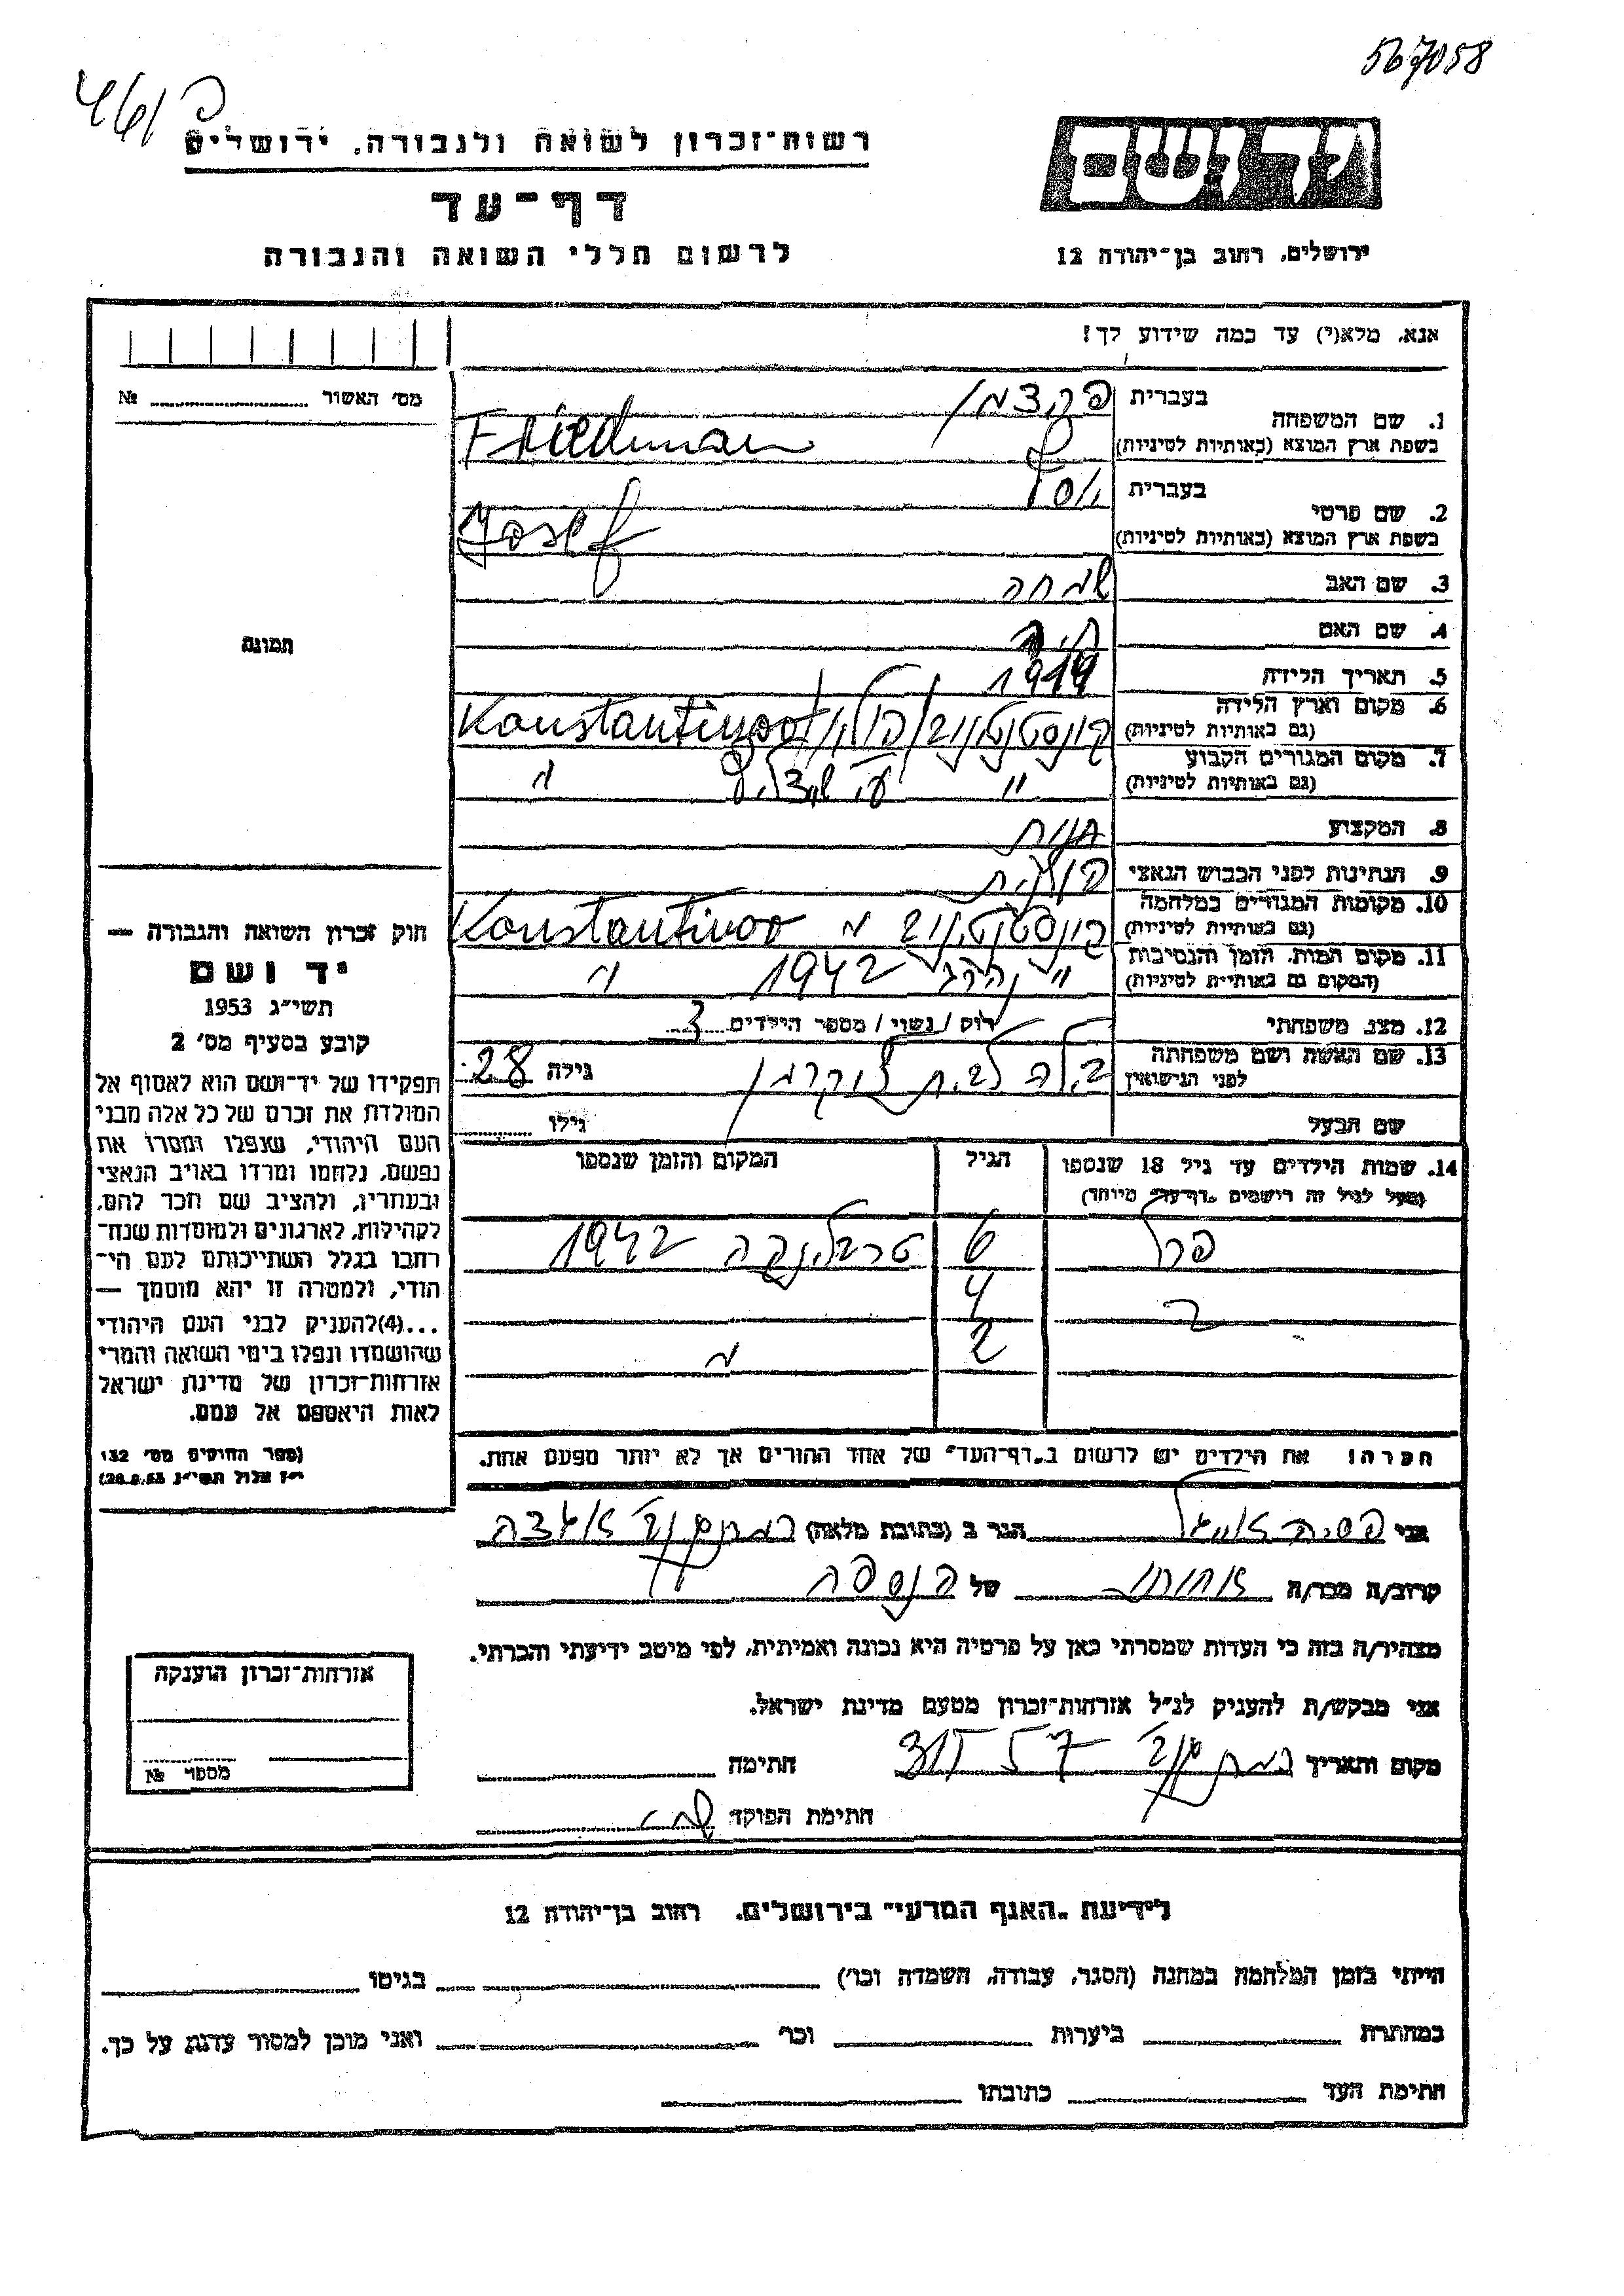 567058
רשות־זכרון לשואה ולגבורה, ירושלים
דף־עד
לרשום חללי השואה והגבורה
ירושלים, רחוב בן־יהודה 12
אנא, מלא(י) עד כמה שידוע לך!
מס׳ האשור № 
1. שם המשפחה
בעברית
בשפת ארץ המוצא (באותיות לטיניות) Friedman
2. שם פרטי
בעברית יוסף
בשפת ארץ המוצא (באותיות לטיניות) Josef
3. שם האב שמחה
4. שם האם
5. תאריך הלידה 1914
6. מקום וארץ הלידה
(גם באותיות לטיניות) קונסטנטינוב פולין Konstantinov
7. מקום המגורים הקבוע
(גם באותיות לטיניות) "
8. המקצוע
9. הנתינות לפני הכבוש הנאצי פולנית
10. מקומות המגורים במלחמה
(גם באותיות לטיניות) קונסטנטינוב Konstantinov
11. מקום המות, הזמן והנסיבות
(המקום גם באותיות לטיניות) " נהרג 1942 "
12. מצב משפחתי רוק / נשוי / מספר הילדים 3
13. שם האשה ושם משפחתה
לפני הנישואין בילה לבית צוקרמן גילה 28
שם הבעל גילו
14. שמות הילדים עד גיל 18 שנספו
(מעל לגיל זה רישמים „דף־עד״ מיוחד)
הגיל
המקום והזמן שנספו
6 טרבלינקה 1942
4
2 "
הערה: את הילדים יש לרשום ב„דף־העד״ של אחד ההורים אך לא יותר מפעם אחת.
תמונה
חוק זכרון השואה והגבורה —
יד ושם
תשי״ג 1953
קובע בסעיף מס׳ 2
תפקידו של יד־ושם הוא לאסוף אל
המולדת את זכרם של כל אלה מבני
העם היהודי, שנפלו ומסרו את
נפשם, נלחמו ומרדו באויב הנאצי
ובעוזריו, ולהציב שם וזכר להם,
לקהילות, לארגונים ולמוסדות שנח־
רבו בגלל השתייכותם לעם הי־
הודי, ולמטרה זו יהא מוסמך —
...(4) להעניק לבני העם היהודי
שהושמדו ונפלו בימי השואה והמרי
אזרחות־זכרון של מדינת ישראל
לאות היאספם אל עמם.
(ספר החוקים מס׳ 132
י״ז אלול תשי״ג 28.8.53)
אני הגר ב (כתובת מלאה)
קרוב/ה מכר/ה אחותו של הנספה
מצהיר/ה בזה כי העדות שמסרתי כאן על פרטיה היא נכונה ואמיתית, לפי מיטב ידיעתי והכרתי.
אני מבקש/ת להעניק לנ״ל אזרחות־זכרון מטעם מדינת ישראל.
מקום ותאריך 57 חתימה
חתימת הפוקד
אזרחות־זכרון הוענקה
מספר №
לידיעת „האגף המדעי״ בירושלים, רחוב בן־יהודה 12
הייתי בזמן המלחמה במחנה (הסגר, עבודה, השמדה וכו׳) בגיטו
במחתרת ביערות וכו׳ ואני מוכן למסור עדות על כך.
חתימת העד כתובתו